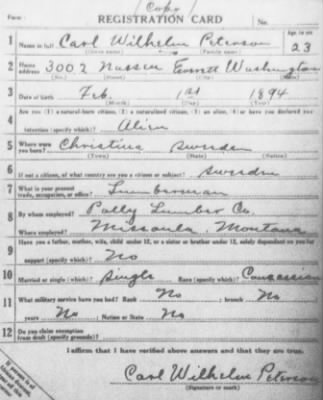 (Copy)
Form REGISTRATION CARD No.
1 Name in full Carl Wilhelm Peterson Age, in yrs. 23
(Given name) (Family name)
2 Home address 3002 Nassau Everett Washington
(No.) (Street) (City) (State)
3 Date of birth Feb. 1st 1894
(Month) (Day) (Year)
4 Are you (1) a natural-born citizen, (2) a naturalized citizen, (3) an alien, (4) or have you declared your
intention (specify which)? Alien
5 Where were you born? Christina Sweden
(Town) (State) (Nation)
6 If not a citizen, of what country are you a citizen or subject? Sweden
7 What is your present trade, occupation, or office? Lumberman
8 By whom employed? Polly Lumber Co.
Where employed? Missoula, Montana
9 Have you a father, mother, wife, child under 12, or a sister or brother under 12, solely dependent on you for
support (specify which)? No
10 Married or single (which)? Single Race (specify which)? Caucassian
11 What military service have you had? Rank No ; branch No
years No ; Nation or State No
12 Do you claim exemption from draft (specify grounds)?
I affirm that I have verified above answers and that they are true.
Carl Wilhelm Peterson
(Signature or mark)
If person is of